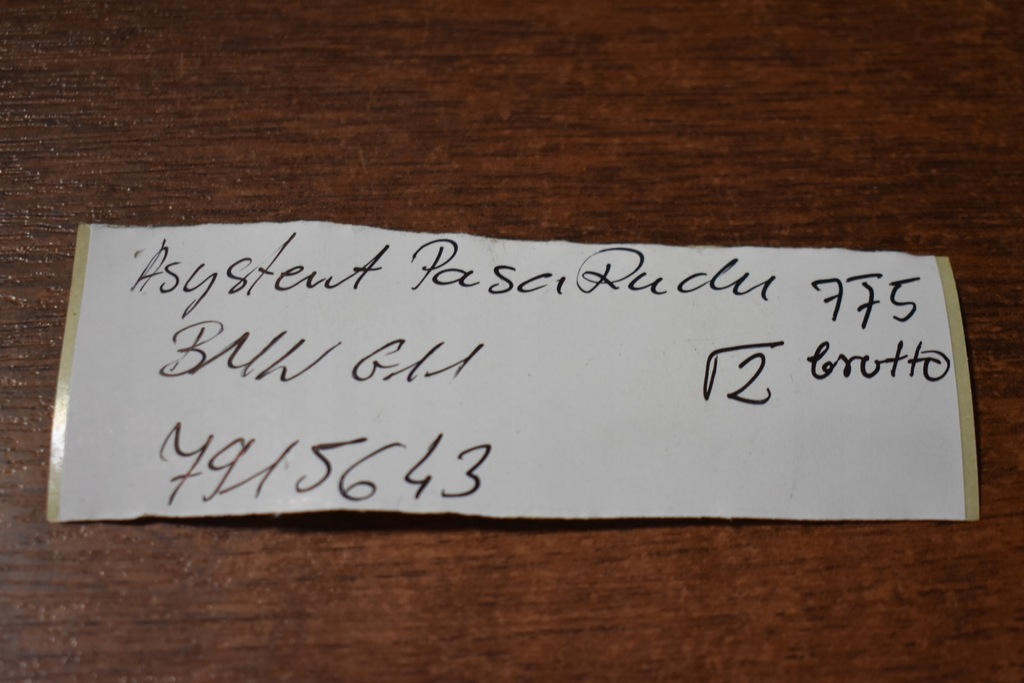 Asystent Pasa Ruchu 775
BMW G11 √2 brutto
7915643